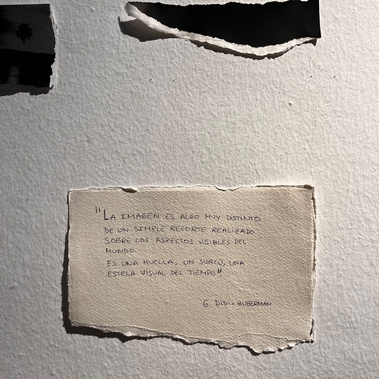 "LA IMAGEN ES ALGO MUY DISTINTO
DE UN SIMPLE RECORTE REALIZADO
SOBRE LOS ASPECTOS VISIBLES DEL
MUNDO.
ES UNA HUELLA, UN SURCO, UNA
ESTELA VISUAL DEL TIEMPO"
G DIDI-HUBERMAN